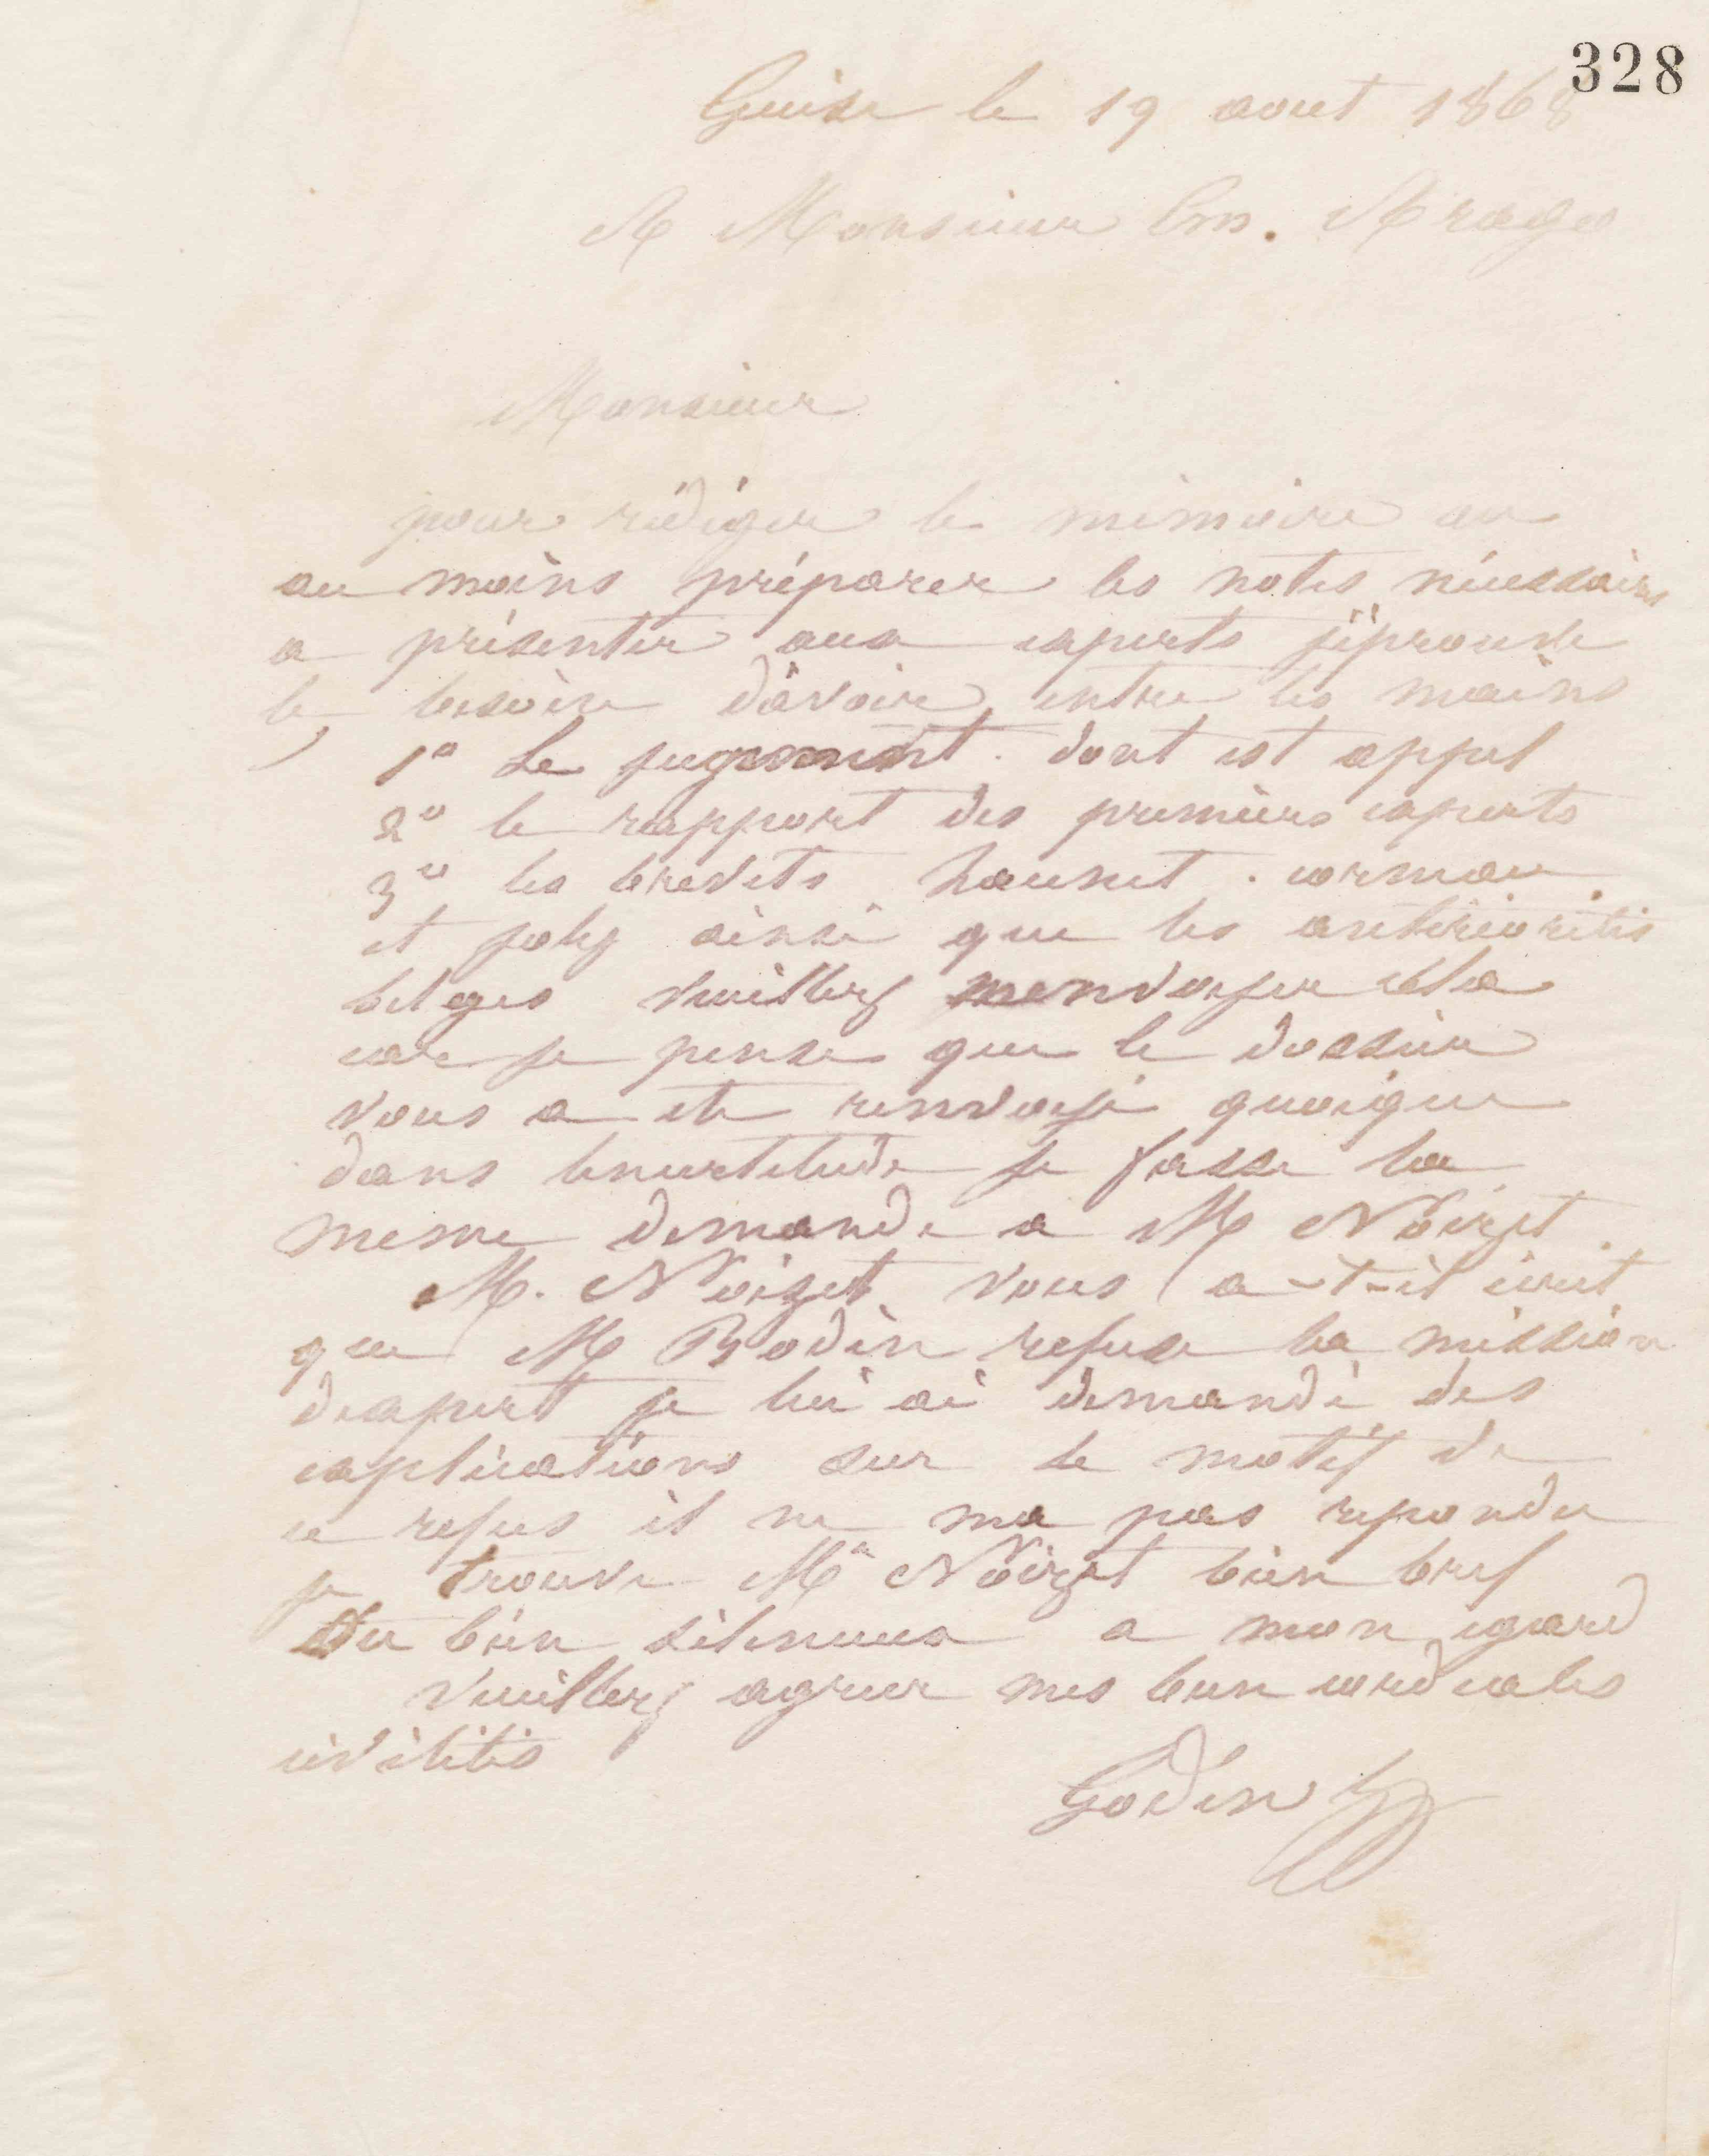 328
Guise le 19 aout 1868
A Monsieur Em. Arago
Monsieur
pour rédiger le mémoire ou
au moins préparer les notes nécessaires
a présenter aux experts j'éprouve
le besoin d'avoir entre les mains
1° Le jugement. dont est appel
2° le rapport des premiers experts
3° les brevets corneau
et joly ainsi que les antériorités
belges veuillez menvoyer cela
car je pense que le dossier
vous a ete renvoyé quoique
dans lincertitude je fasse la
meme demande a M Noizet
M. Noizet vous a-t-il écrit
que M Bodin refuse la mission
dexpert je lui ai demandé des
explications sur le motif de
ce refus il ne ma pas repondu
je trouve Mr Noizet bien bref
Ou bien silencieux a mon egard
veuillez agreer mes bien cordiales
civilités
Godin